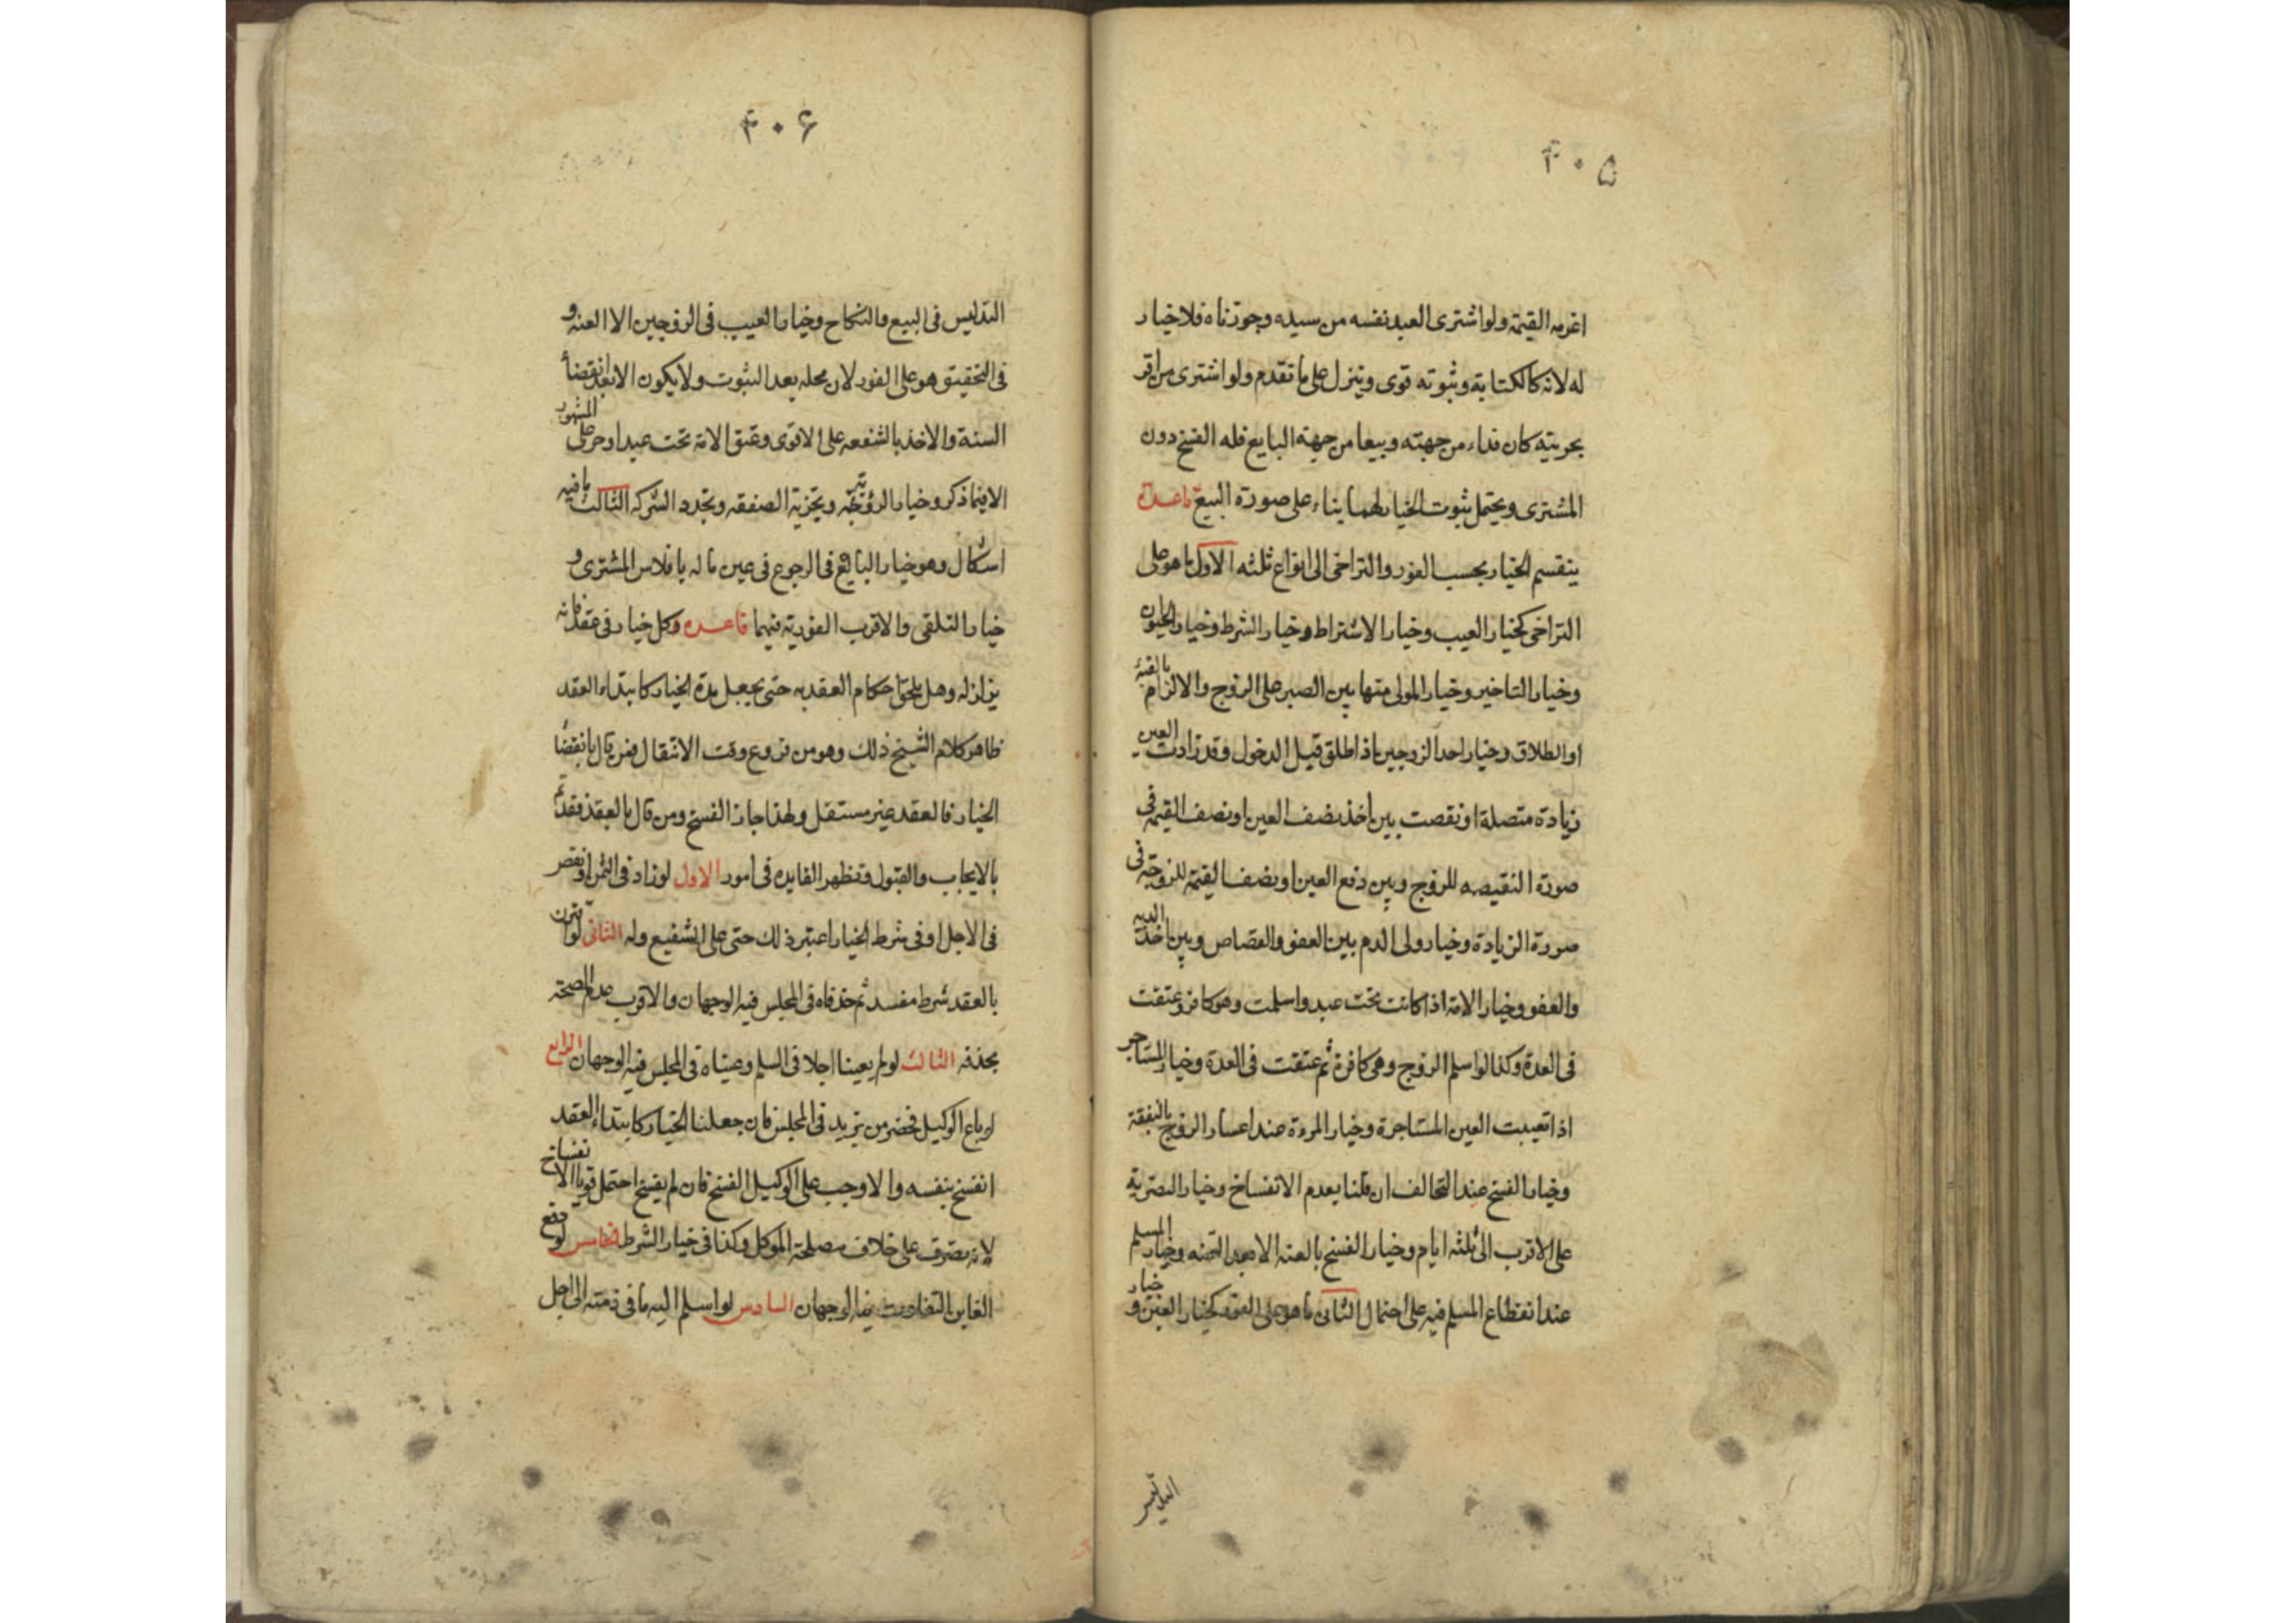 ۴۰۵
اغرمه القيمة ولو اشترى العبد نفسه من سيده وجوزناه فلا خيار
له لانه كالكتابة وثبوته قوى ويتنزل على ما تقدم ولو اشترى من اقر
بحريته كان فداء من جهته وبيعا من جهة البايع فله الفسخ دون
المشترى ويحتمل ثبوت الخيار لهما بناء على صورة البيع قاعدة
ينقسم الخيار بحسب الفور والتراخى الى انواع ثلثه الاول ما هو على
التراخى كخيار العيب وخيار الاشتراط وخيار الشرط وخيار الحيوان
وخيار التاخير وخيار المولى منها بين الصبر على الزوج والالزام بالفئة
او الطلاق وخيار احد الزوجين اذا طلق قبل الدخول وقد زادت العين
زيادة متصلة او نقصت بين اخذ نصف العين او نصف القيمة فى
صورة النقيصه للزوج وبين دفع العين او نصف القيمة للزوجة فى
صورة الزيادة وخيار ولى الدم بين العفو والقصاص وبين اخذ الدية
والعفو وخيار الامة اذا كانت تحت عبد واسلمت وهو كافر وعتقت
فى العدة وكذا لو اسلم الزوج وهى كافرة ثم عتقت فى العدة وخيار المستاجر
اذا تعيبت العين المستاجرة وخيار المرءة عند اعسار الزوج بالنفقة
وخيار الفسخ عند التحالف ان قلنا بعدم الانفساخ وخيار التصرية
على الاقرب الى ثلثه ايام وخيار الفسخ بالعنه الا بعد وخيار المسلم
عند انقطاع المسلم فيه على احتمال الثانى ما هو على الفور كخيار الغبن و خيار
التدليس
۴۰۶
التدليس فى البيع والنكاح وخيار العيب فى الزوجين الا العنه و
فى التحقيق هو على الفور لان محله بعد الثبوت ولا يكون الا بعد انقضاء
السنة والاخذ بالشفعه على الاقوى وعتق الامة تحت عبد او حر على المشهور
الا فيما ذكر وخيار الرؤية وتجزية الصفقه وتجدد الشركه الثالث ما فيه
اشكال وهو خيار البايع فى الرجوع فى عين ماله بافلاس المشترى و
خيار التلقى والاقرب الفورية فيهما قاعده وكل خيار فى عقد فانه
يزلزله وهل يلحق احكام العقد به حتى يجعل مدة الخيار كابتداء العقد
ظاهر كلام الشيخ ذلك وهو من فروع وقت الانتقال فمن قال بانقضاء
الخيار فالعقد غير مستقل ولهذا جاز الفسخ ومن قال بالعقد فقد تم
بالايجاب والقبول وتظهر الفايده فى امور الاول لو زاد فى الثمن او نقص
فى الاجل او فى شرط الخيار اعتبر ذلك حتى على الشفيع وله الثانى لو اقترن
بالعقد شرط مفسد ثم حذفاه فى المجلس فيه الوجهان والاقرب عدم الصحة
بحذفه الثالث لو لم يعينا اجلا فى السلم وعيناه فى المجلس فيه الوجهان الرابع
لو باع الوكيل فحضر من يزيد فى المجلس فان جعلنا الخيار كابتداء العقد
انفسخ بنفسه والا وجب على الوكيل الفسخ فان لم يفسخ احتمل قويا الانفساخ
لانه تصرف على خلاف مصلحة الموكل وكذا فى خيار الشرط الخامس لو دفع
الغابن التفاوت فيه الوجهان السادس لو اسلم اليه ما فى ذمته الى اجل